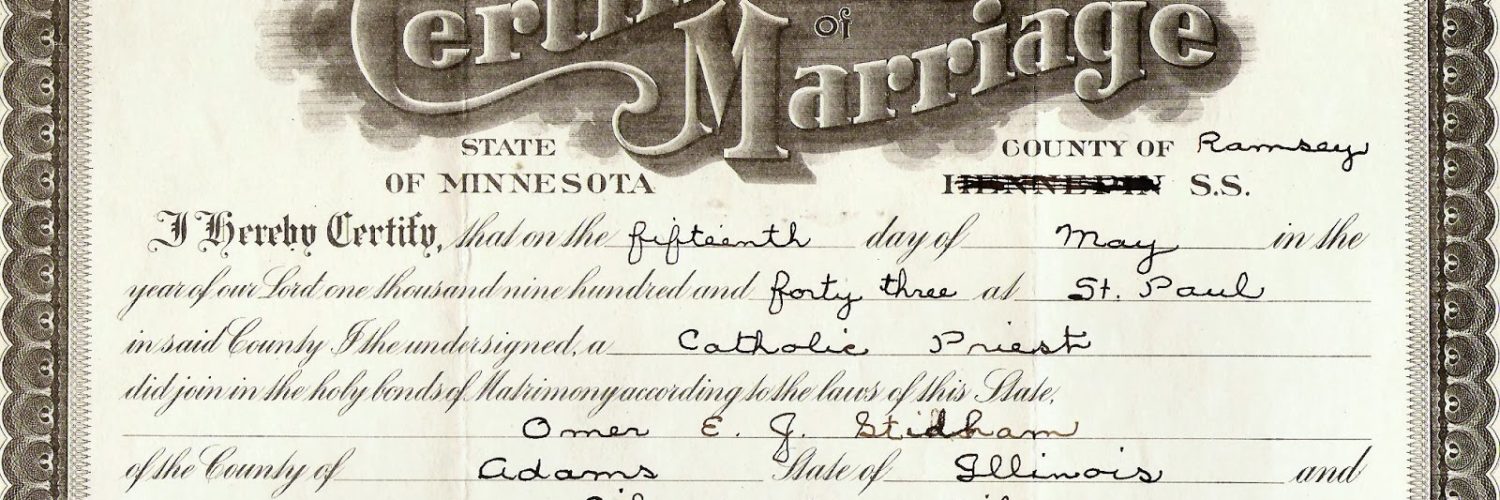 Certificate
of
Marriage
STATE
OF MINNESOTA
COUNTY OF Ramsey
HENNEPIN S.S.
I Hereby Certify, that on the fifteenth day of May in the
year of our Lord one thousand nine hundred and forty three at St. Paul
in said County I the undersigned, a Catholic Priest
did join in the holy bonds of Matrimony according to the laws of this State,
Omer E. J. Stidham
of the County of Adams State of Illinois and